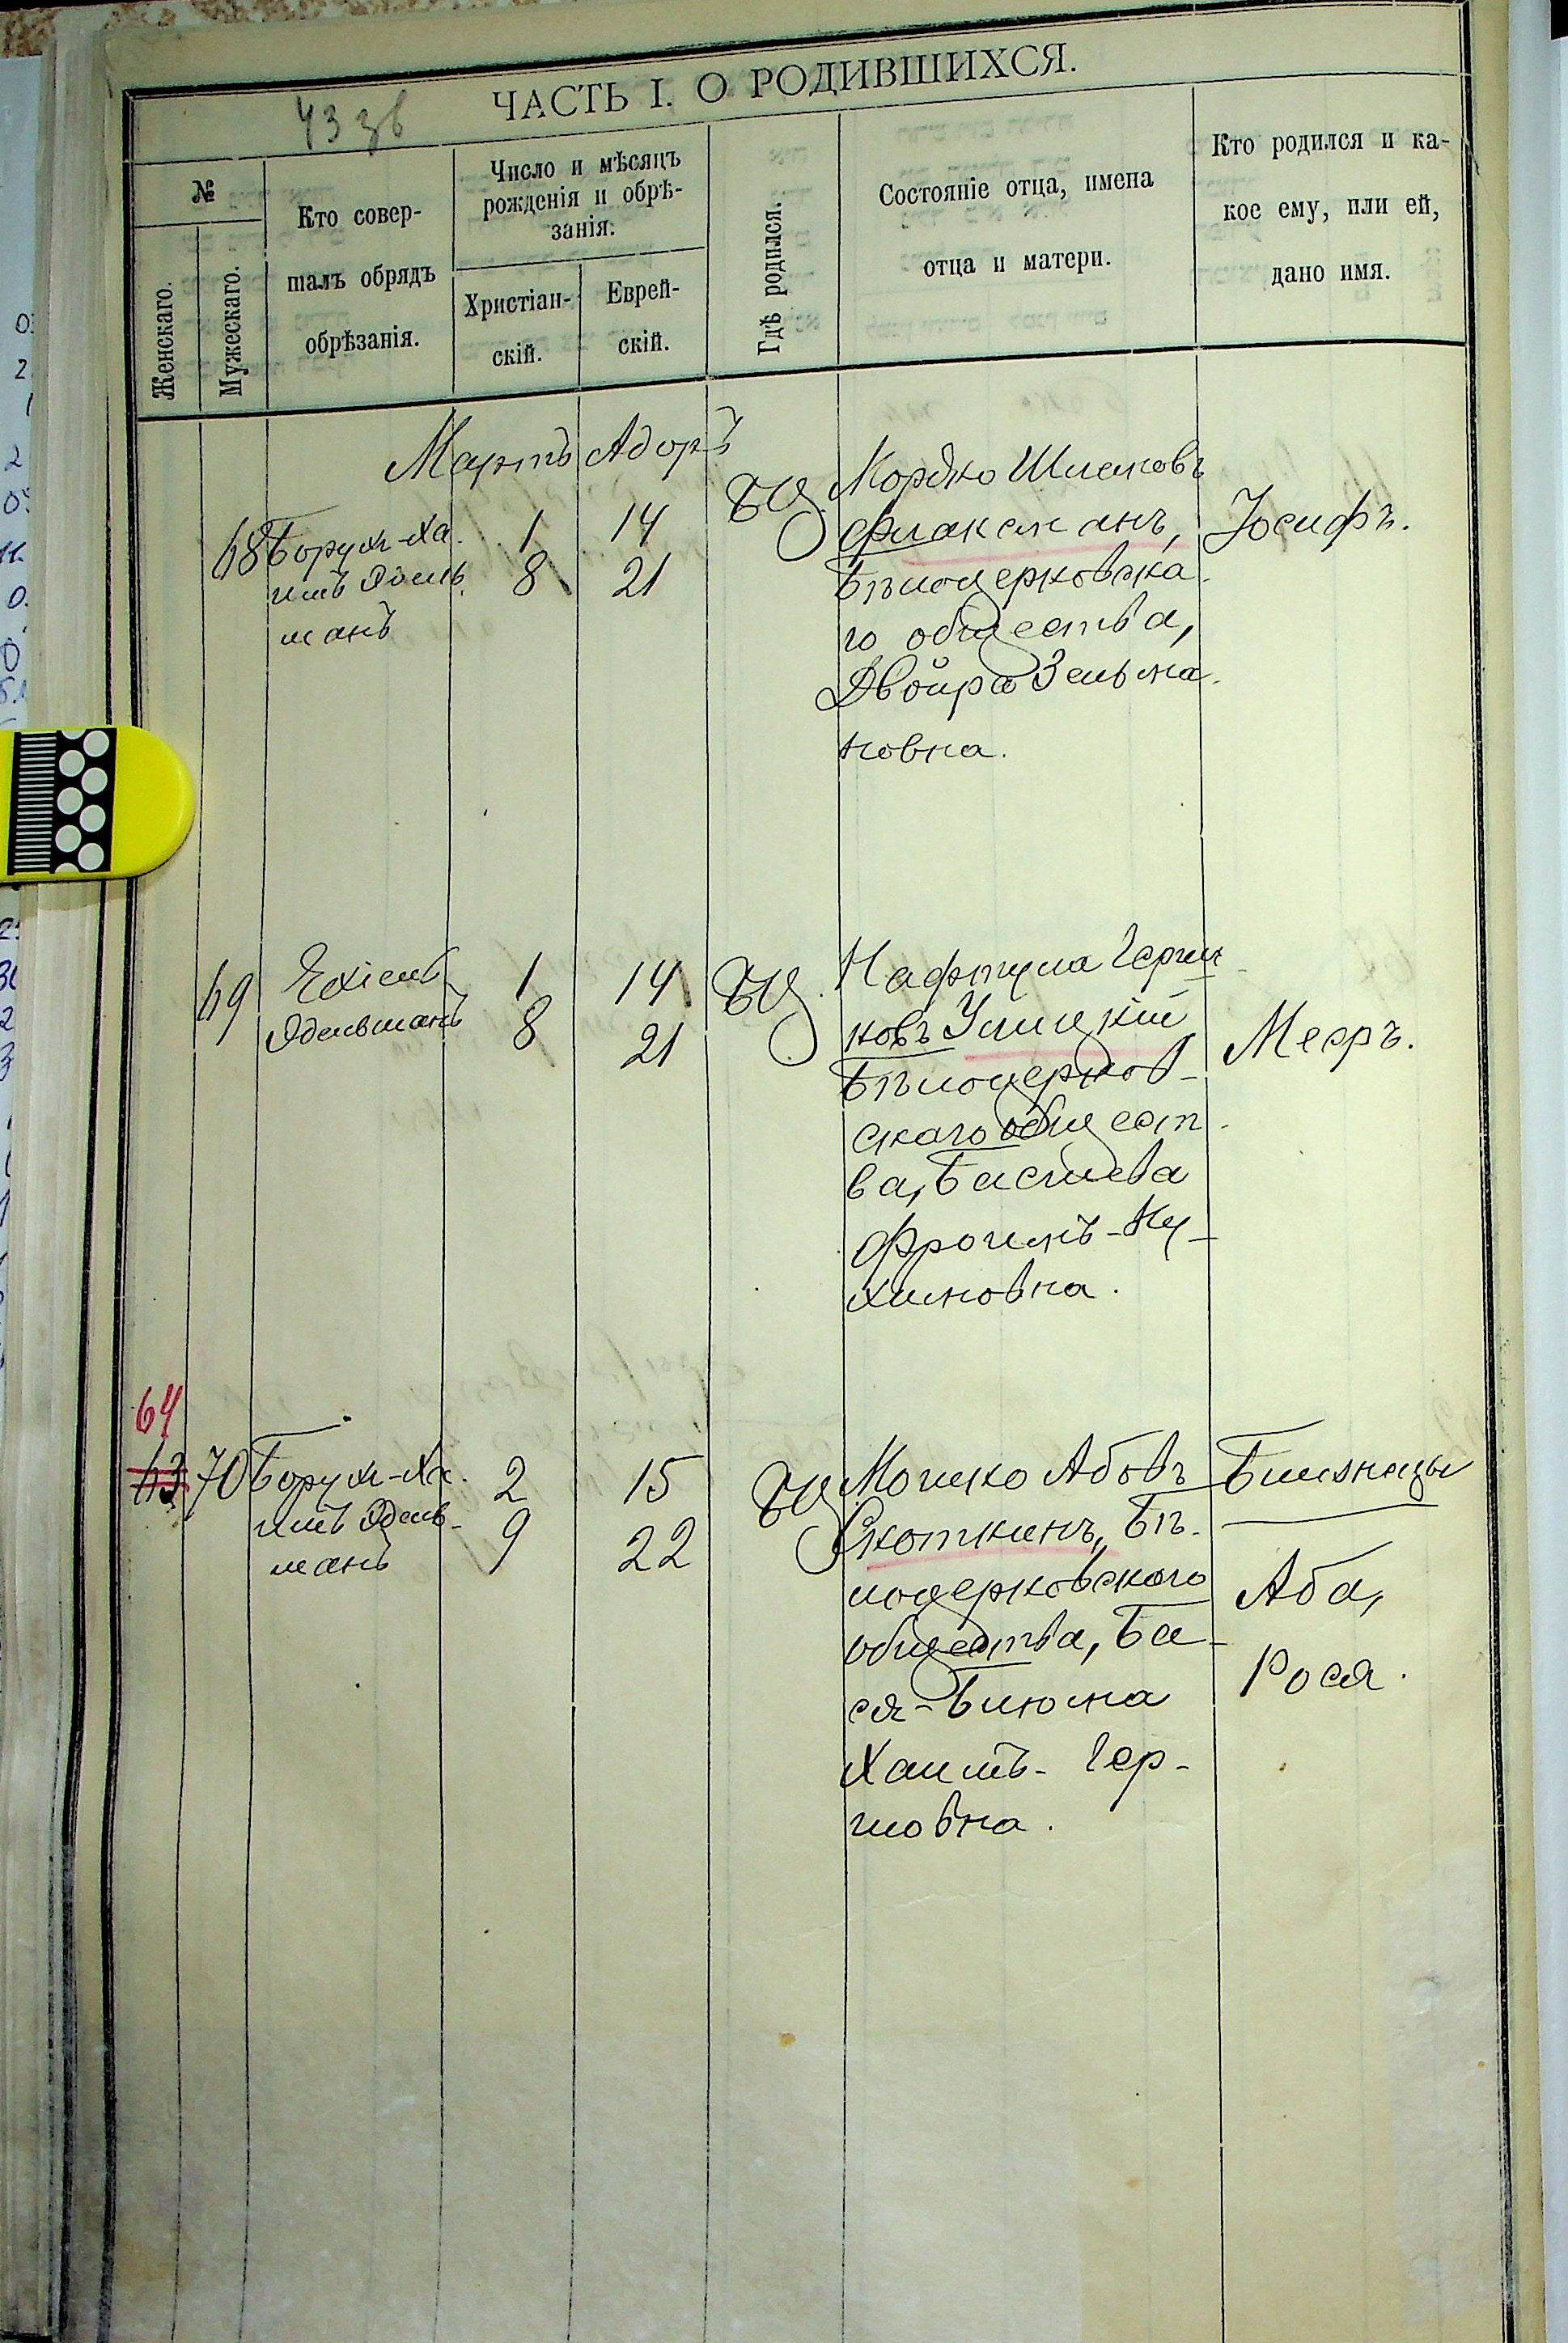 ЧАСТЬ I. О РОДИВШИХСЯ.
43 зв
№
Женскаго.
Мужескаго.
Кто совер-
шалъ обрядъ
обрѣзанія.
Число и мѣсяцъ
рожденія и обрѣ-
занія.
Христіан-
скій.
Еврей-
скій.
Гдѣ родился.
Состояніе отца, имена
отца и матери.
Кто родился и ка-
кое ему, или ей,
дано имя.
Мартъ Адоръ
68
Борухъ-Ха
имъ Эдель
манъ
1
8
14
21
БЦ.
Мордко Шлемовъ
Флаксманъ,
Бѣлоцерковска
го общества,
Двойра Зельма
новна.
Іосифъ.
69
Ехіель
Эдельманъ
1
8
14
21
БЦ.
Нафтула Герш
ковъ Улицкій
Бѣлоцерков-
скаго общест
ва, Басшева
Фроимъ-Ну-
химовна.
Мееръ.
64
63
70
Борухъ-Ха
имъ Эдель-
манъ
2
9
15
22
БЦ.
Мошко Абовъ
Скоткинъ, Бѣ-
лоцерковскаго
общества, Ба-
ся-Блюма
Хаимъ-Гер-
шовна.
Близнецы
Аба,
Рося.